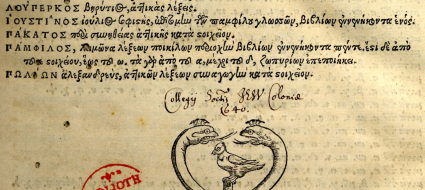 ΛΟΥΠΕΡΚΟΣ Βηρύτιος, ἀττικὰς λέξεις.
ΙΟΥΣΤΙΝΟΣ ἰουλίου σοφιστής, τῶν παμφίλου γλωσσῶν, βιβλίων ἐννενήκοντα ἑνός.
ΠΑΚΑΤΟΣ περὶ συνηθείας ἀττικῆς κατὰ στοιχεῖον.
ΠΑΜΦΙΛΟΣ, λειμῶνα λέξεων ποικίλων βιβλίων ἐννενήκοντα πέντε, ἔστι δὲ ἀπὸ
τοῦ ε στοιχείου, ἕως τοῦ ω. τὰ γὰρ ἀπὸ τοῦ α, μέχρι τοῦ δ, ζωπυρίων ἐπεποιήκει.
ΠΩΛΙΩΝ ἀλεξανδρεύς, ἀττικῶν λέξεων συναγωγὴν κατὰ στοιχεῖον.
Collegij Societ. IESV Coloniæ